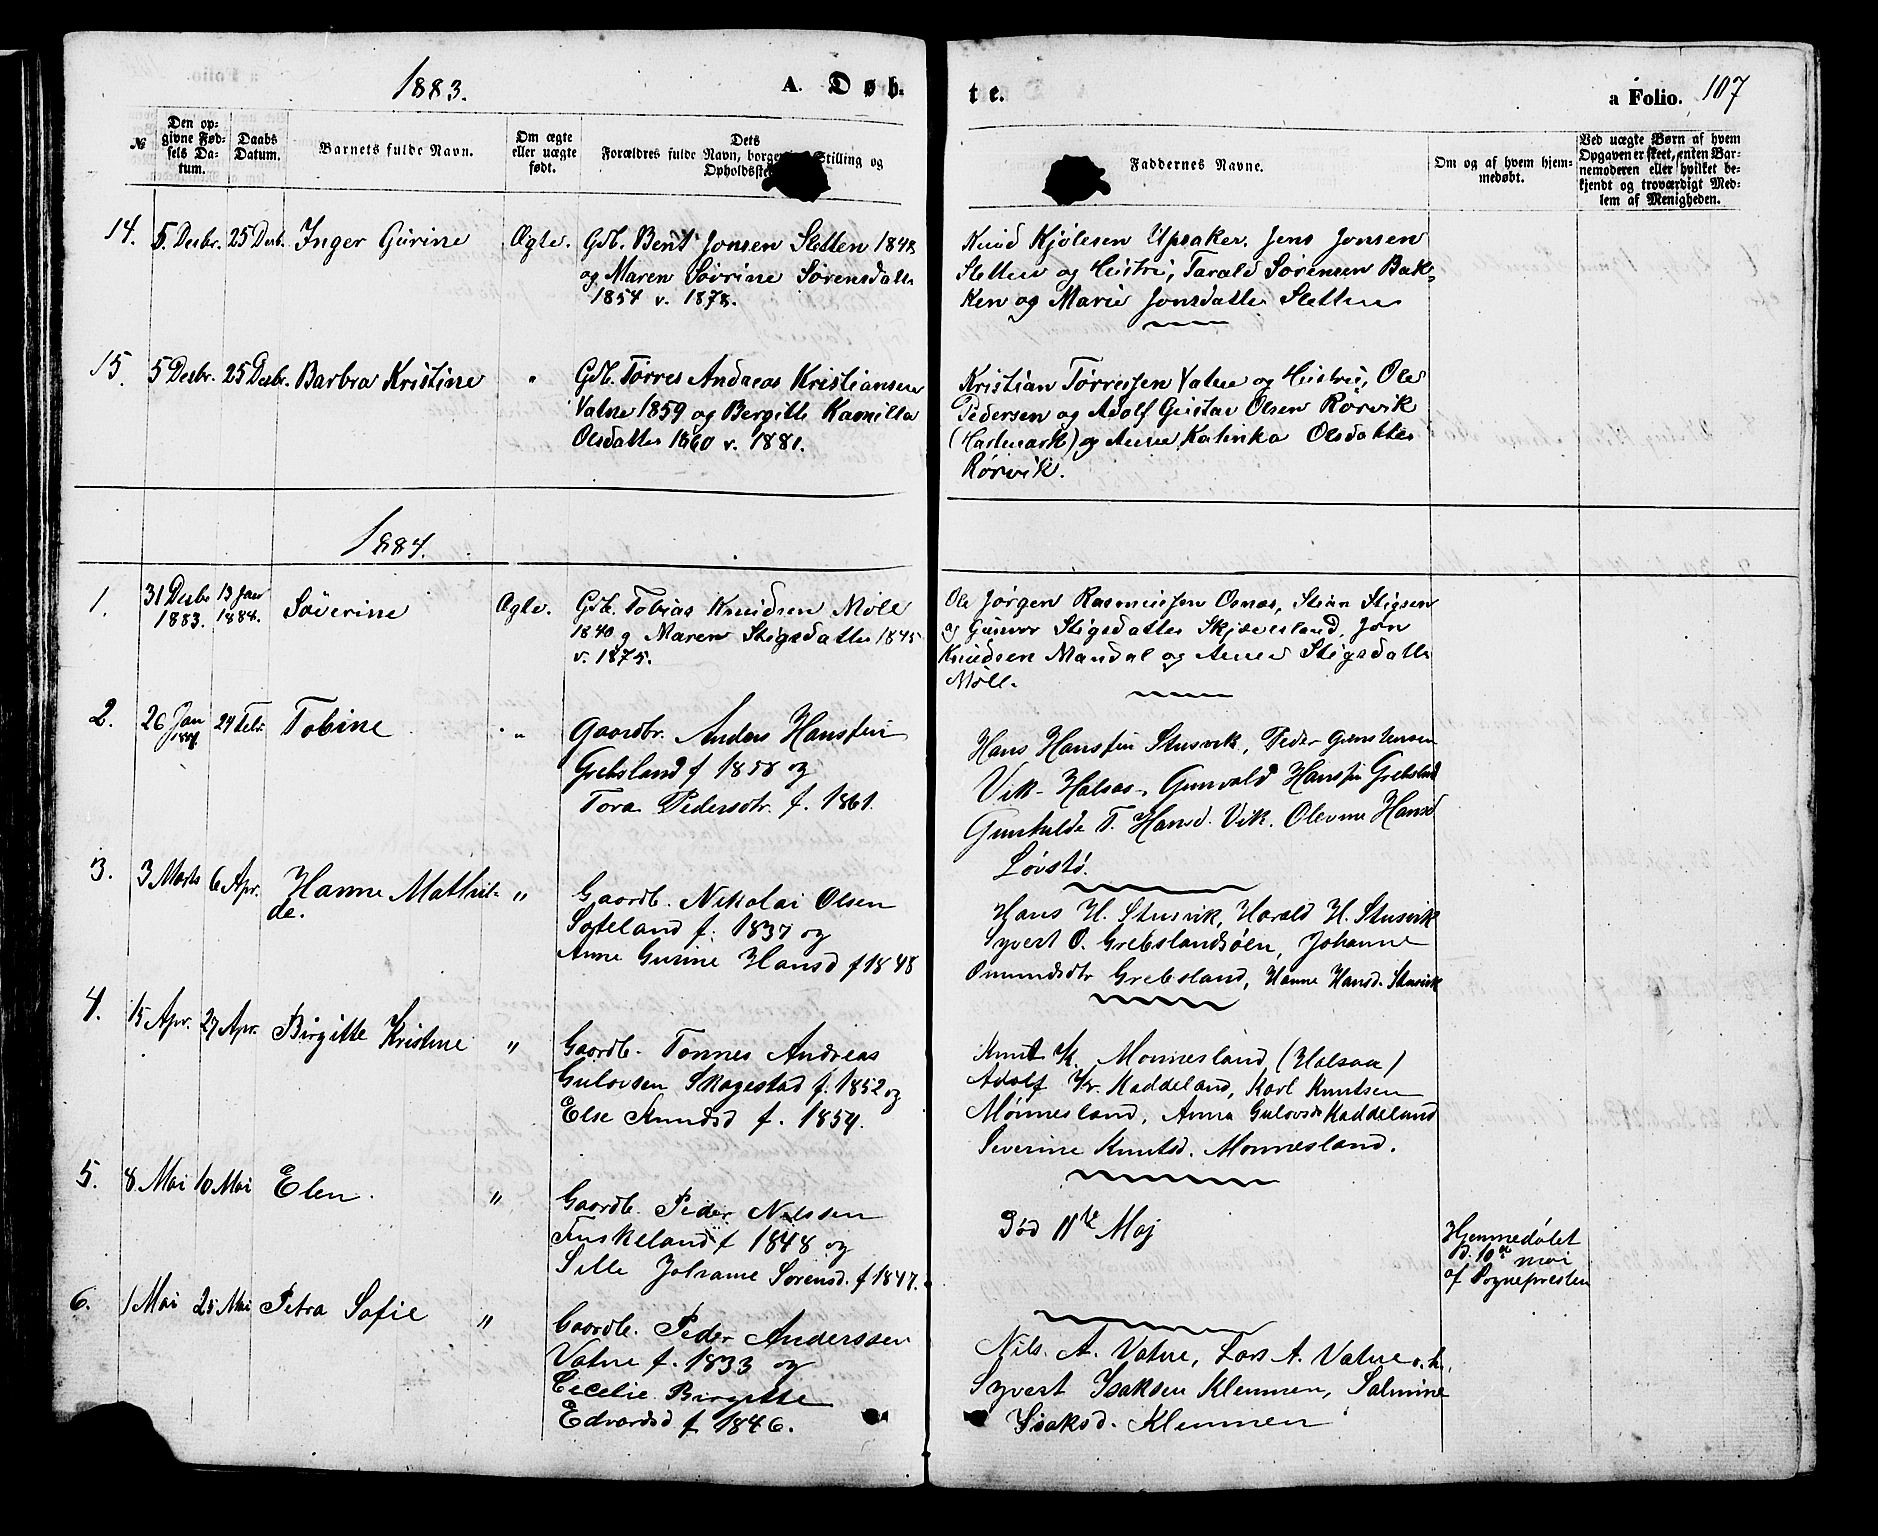 1883.
A. Døb-
te.
a Folio. 107
№
Den op-
givne Fød-
sels Da-
tum.
Daabs
Datum.
Barnets fulde Navn.
Om ægte
eller uægte
født.
Dets
Forældres fulde Navn, borgerlige Stilling og
Opholdssted
Faddernes Navne.
Om og af hvem hjem-
medøbt.
Ved uægte Børn af hvem
Opgaven er skeet, enten Bar-
nemoderen eller hvilket be-
kjendt og troværdigt Med-
lem af Menigheden.
14. 5. Desbr. 25 Desb. Inger Gurine Ægte. Gdb. Bent Jonsen Sletten 1848
og Maren Sovrine Sørensdatter
1854 v. 1878.
Knud Kjølesen Upsaker. Jens Jonsen
Sletten og Hustru, Tarald Sørensen Bak-
ken og Marie Jonsdatter Sletten
15. 5 Desbr. 25 Desbr. Barbra Kristine " Gdb. Tørres Andreas Kristiansen
Vatne 1859 og Bergitte Kamilla
Olsdatter 1860 v. 1881.
Kristian Tørressen Vatne og Hustru, Ole
Pedersen og Adolf Gustav Olsen Rørvik
(Hartmark) og Anne Katinka Olsdatter
Rørvik.
1884.
1. 31 Desbr 1883. 13 Jan 1884. Søverine Ægte. Gdb. Tobias Knudsen Møll
1840 og Maren Stigsdatter 1845
v. 1875.
Ole Jørgen Rasmussen Osnes, Stian Stigsen
og Gunvor Stigsdatter Skjævesland, Jon
Knudsen Mandal og Anne Stigsdatter
Møll.
2. 26 Jan 1884 24 Febr. Tobine " Gaardbr. Anders Hanssen
Grebsland f 1858 og
Tora Pedersdtr. f. 1861.
Hans Hanssen Stusvik, Peder
Vik - Halsaa, Gunvald Hanssen Grebsland
Gunhilde T. Hansd. Vik. Hansd
Løvstø.
3. 3 Marts 6 Apr. Hanne Mathil-
de. " Gaardb. Nikolai Olsen
f. 1837 og
Anne Gurine Hansd f 1848
Hans H. Stusvik, Harald H. Stusvik
Syvert O. Grebslandsøen, Johanne
Omundsdtr Grebsland, Hanne Hansd. Stusvik
4. 15 Apr. 27 Apr. Birgitte Kristine " Gaardb. Tønnes Andreas
Gulovsen Skogestad f. 1852 og
Else Knudsd f. 1859.
Knut K. Mønnesland (Halsaa)
Adolf Kr. Kaddeland, Karl Knutsen
Mønnesland, Anna Gulovsd Kaddeland
Severine Knutsd. Mønnesland.
5. 8 Mai 10 Mai Elen. " Gaardb. Peder Nilssen
Tuskeland f 1848 og
Sille Johanne Sørensd. f 1847.
Død 11te Maj
Hjemmedøbt
d. 10de mai
af Sognepresten
6. 1 Mai 25 Mai Petra Sofie " Gaardb. Peder Anderssen
Vatne f. 1833 og
Cecelie Birgitte
Edvardsd f 1846.
Nils A. Vatne, Lars A. Vatne o. h.
Syvert Isaksen Klemmen, Salmine
Isaksd. Klemmen